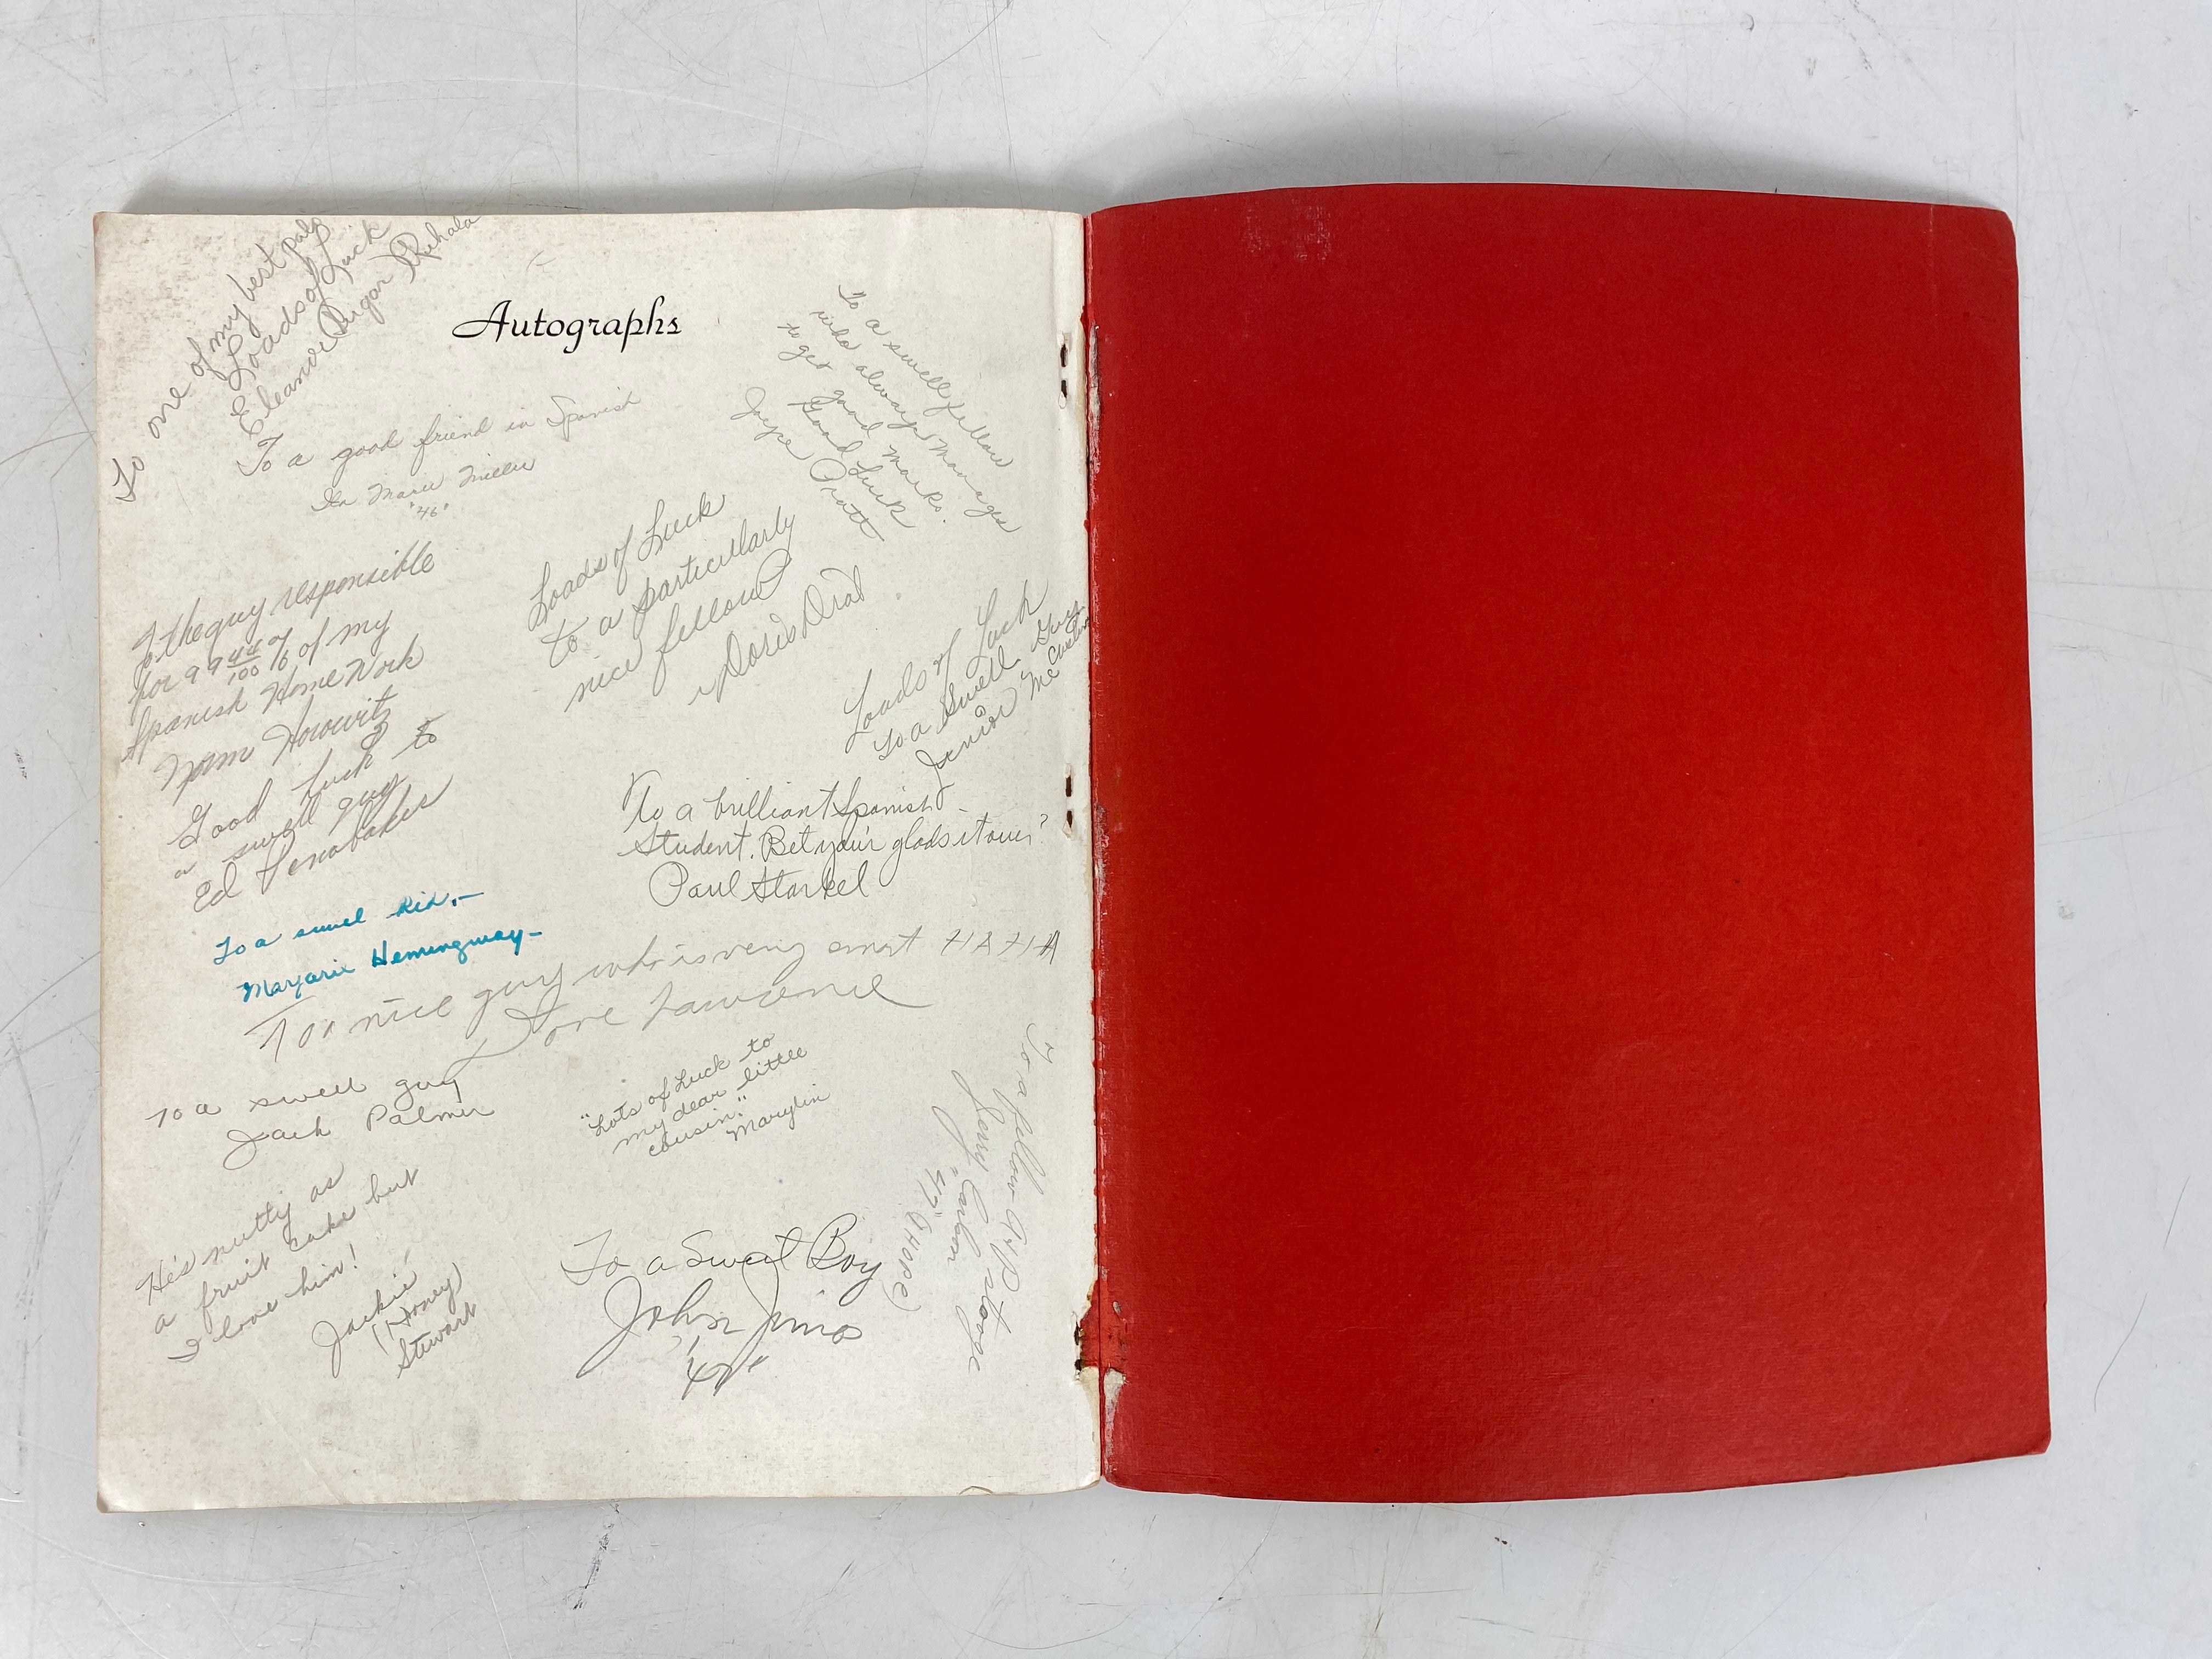 Autographs
To one of my best pals
Loads of Luck
Eleanor
To a good friend in Spanish
Marie Miller
"46"
To a swell fellow
who always manages
to get good marks.
Good Luck
Joyce Pratt
To the guy responsible
for 99 44/100 % of my
Spanish Home Work
Norm Horowitz
Loads of Luck
to a particularly
nice fellow
Doris
Loads of Luck
to a Swell Guy
Junior
Good Luck to
a swell guy
Ed
To a brilliant Spanish
Student. Bet you're glad it's over?
Paul
To a swell kid,-
Marjorie Hemingway-
To a nice guy who is very smart HA HA
Lawrence
To a swell guy
Jack Palmer
"Lots of Luck to
my dear little
cousin."
Marylin
To a fellow
Jerry Carlson
"47" (I HOPE)
He's nutty as
a fruit cake but
I love him!
Jackie
(Honey)
Stewart
To a Sweet Boy
John